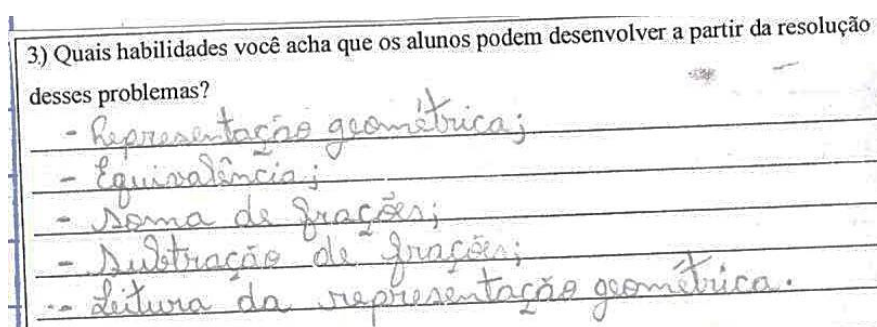 3.) Quais habilidades você acha que os alunos podem desenvolver a partir da resolução
desses problemas?
- Representação geométrica;
- Equivalência;
- Soma de frações;
- Subtração de frações;
- Leitura da representação geométrica.